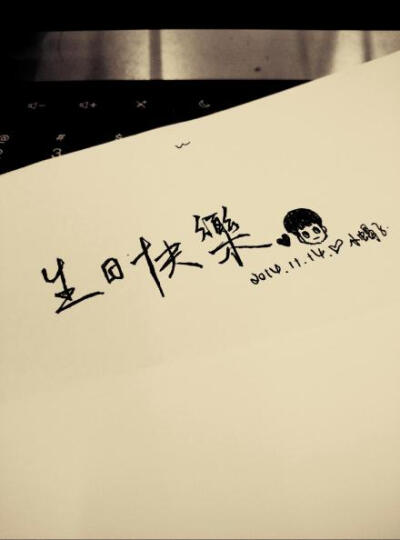 生日快樂
2014.11.14.